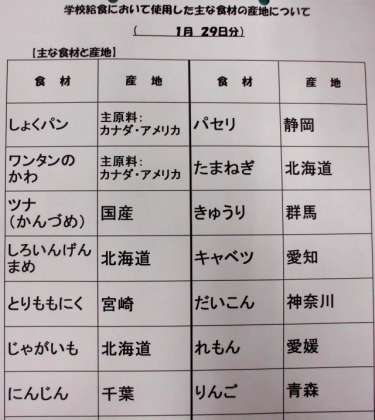 学校給食において使用した主な食材の産地について
(　1月 29日分)
【主な食材と産地】
食材 産地 食材 産地
しょくパン 主原料:カナダ・アメリカ パセリ 静岡
ワンタンのかわ 主原料:カナダ・アメリカ たまねぎ 北海道
ツナ(かんづめ) 国産 きゅうり 群馬
しろいんげんまめ 北海道 キャベツ 愛知
とりももにく 宮崎 だいこん 神奈川
じゃがいも 北海道 れもん 愛媛
にんじん 千葉 りんご 青森